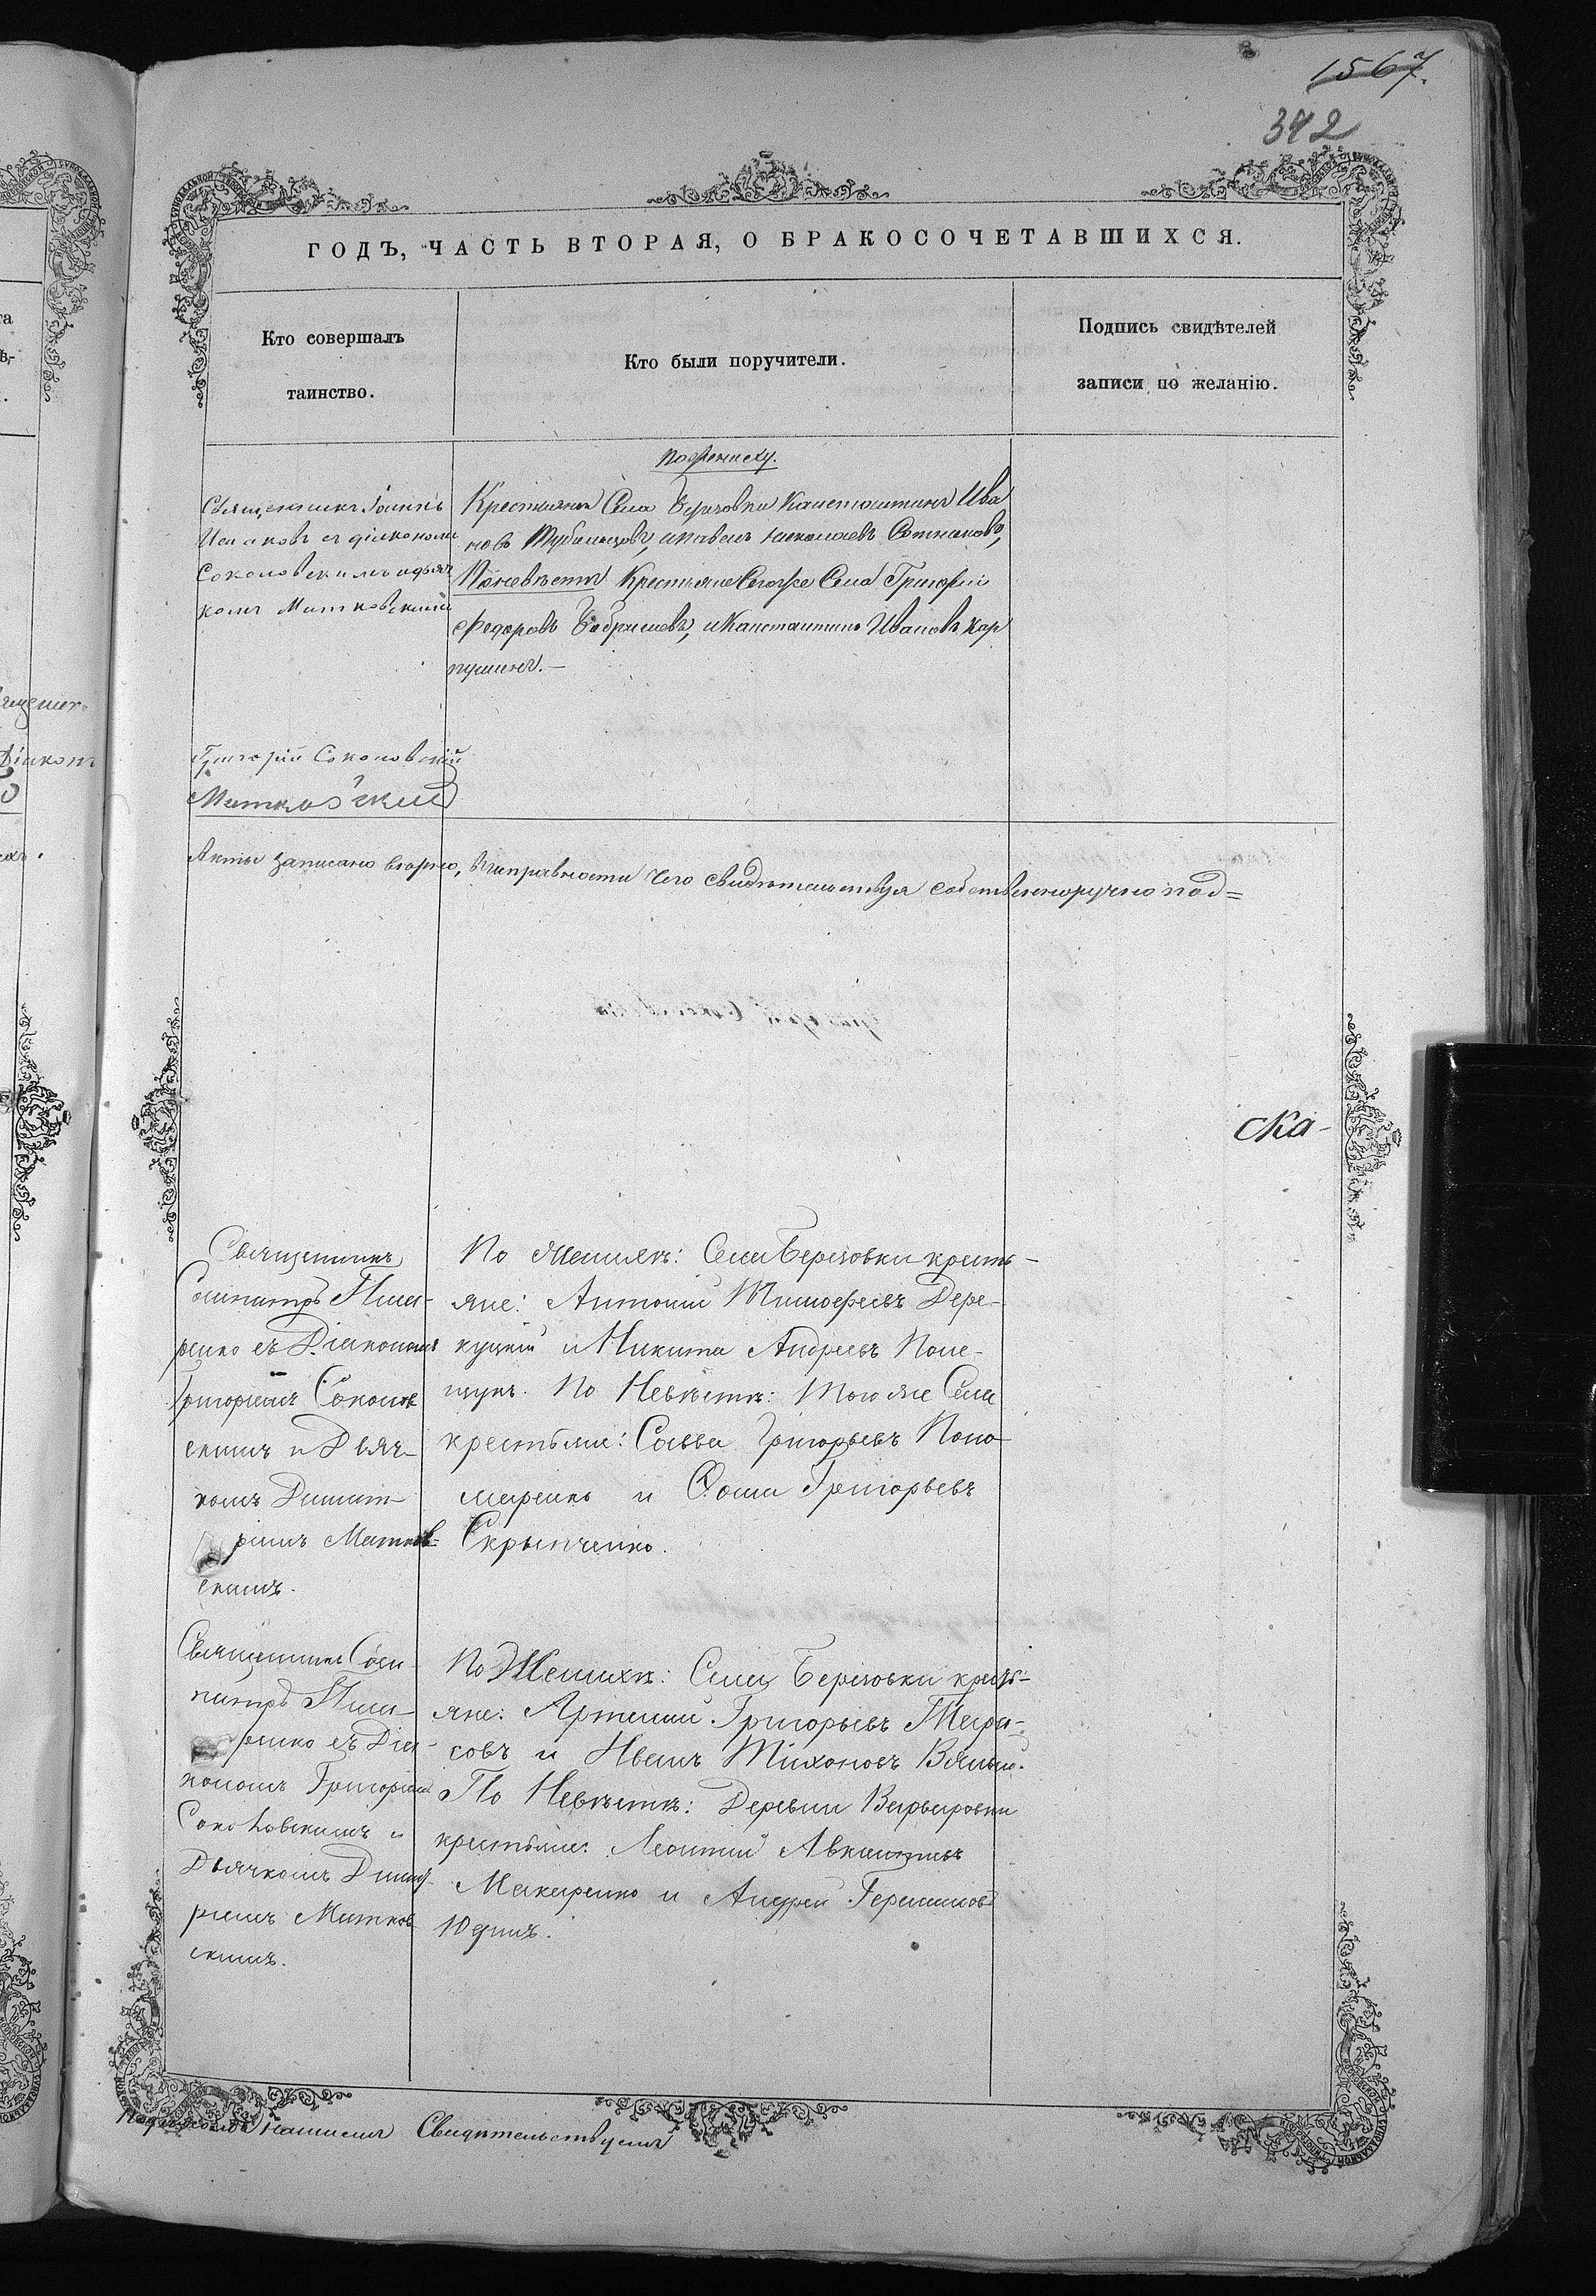 1567.
342
ГОДЪ, ЧАСТЬ ВТОРАЯ, О БРАКОСОЧЕТАВШИХСЯ.
Кто совершалъ
таинство.
Кто были поручители.
Подпись свидѣтелей
записи по желанію.
по жениху.
Священникъ Іоаннъ
Исаковъ съ діакономъ
Соколовскимъ и дьяч
комъ Митковскимъ
Крестьяне Села Березовки Константинъ Ива
новъ и Павелъ Николаевъ Сотниковъ,
По невѣстѣ Крестьяне Сегоже Села Григорій
Федоровъ и Константинъ Ивановъ Кар
пушинъ.—
Григорій Соколовскій
Митковскій
Акты записано вѣрно, въ исправности чего свидѣтельствуя собственноручно под=
ска-
Священникъ
Сосипатръ Писа-
ренко съ Діакономъ
Григоріемъ Соколов
скимъ и Дьяч-
комъ Димит-
ріемъ Митков-
скимъ.
По Женихѣ: Села Березовки кресть-
яне: Антоній Тимофеевъ Дере-
куцкій и Никита Андреевъ Поле-
щукъ. По Невѣстѣ: Того же Села
крестьяне: Савва Григорьевъ Поно-
маренко и Фома Григорьевъ
Скрынченко.
Священникъ Соси-
патръ Писа-
ренко съ Діа-
кономъ Григоріемъ
Соколовскимъ и
Дьячкомъ Димит-
ріемъ Митков
скимъ.
По Женихѣ: Села Березовки кресть-
яне: Артемій Григорьевъ Тара-
совъ и Иванъ Тихоновъ
По Невѣстѣ: Деревни Варваровки
крестьяне: Леонтій
Макаренко и Андрей Герасимовъ
Юдинъ.
Свидѣтельствуемъ